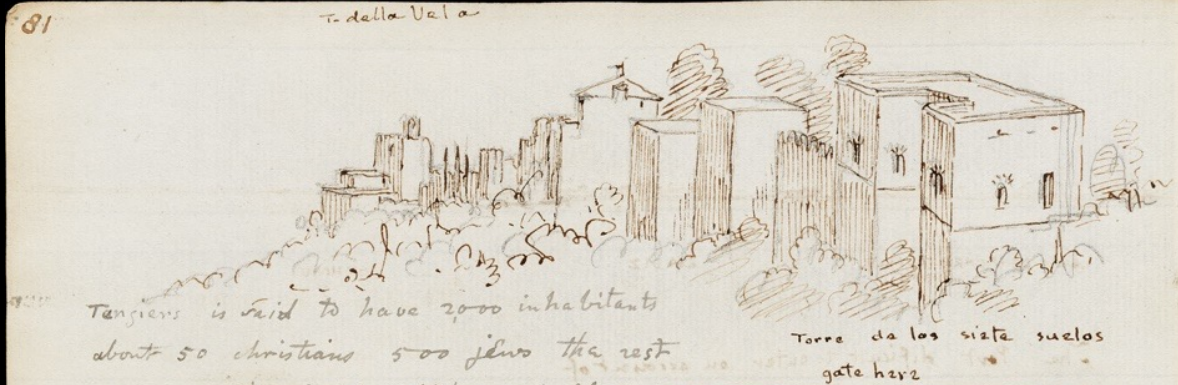 81
T. della Vela
Tengiers is said to have 2000 inhabitants
about 50 christians 500 jews the rest
Torre de los siete suelos
gate here